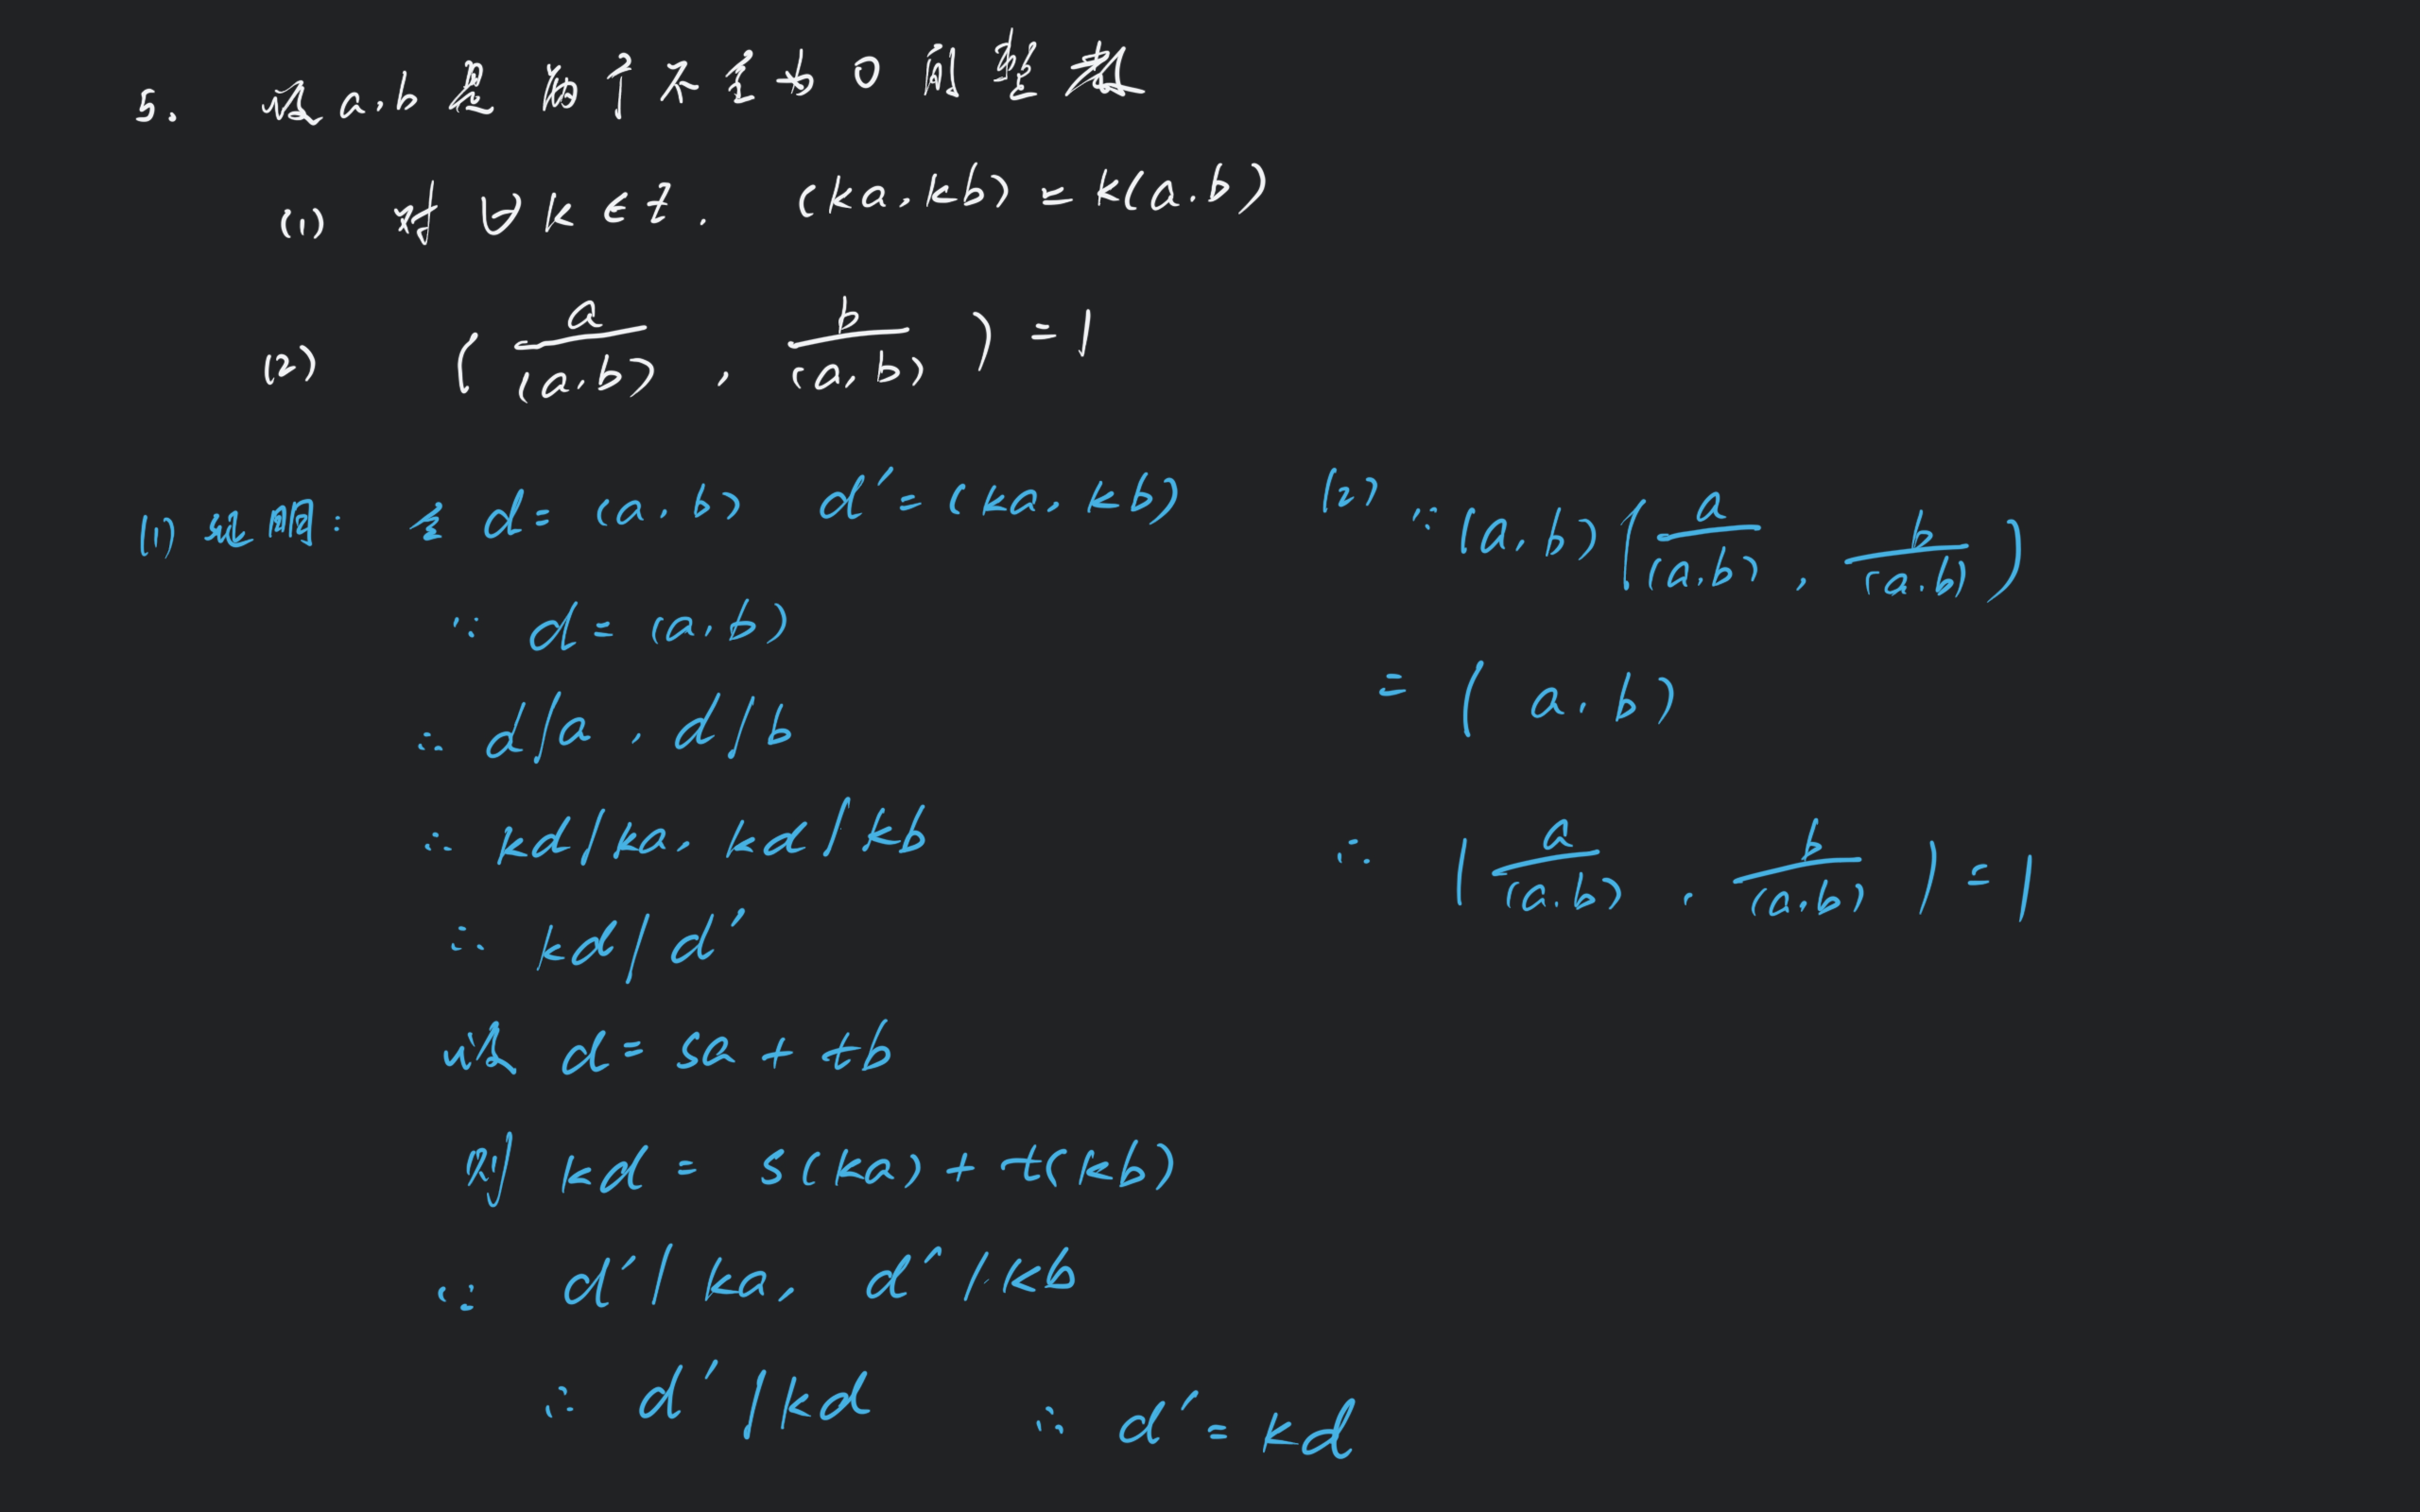 5. 设a,b是两个不全为0的整数
(1) 对∀k∈Z. (ka,kb)=k(a,b)
(2) (a/(a,b), b/(a,b))=1
(1)证明: 令 d=(a,b) d'=(ka,kb)
∵ d=(a,b)
∴ d|a, d|b
∴ kd|ka, kd|kb
∴ kd|d'
设 d=sa+tb
则 kd=s(ka)+t(kb)
∵ d'|ka, d'|kb
∴ d'|kd ∴ d'=kd
(2) ∵(a,b)(a/(a,b), b/(a,b))
=(a,b)
∴ (a/(a,b), b/(a,b))=1